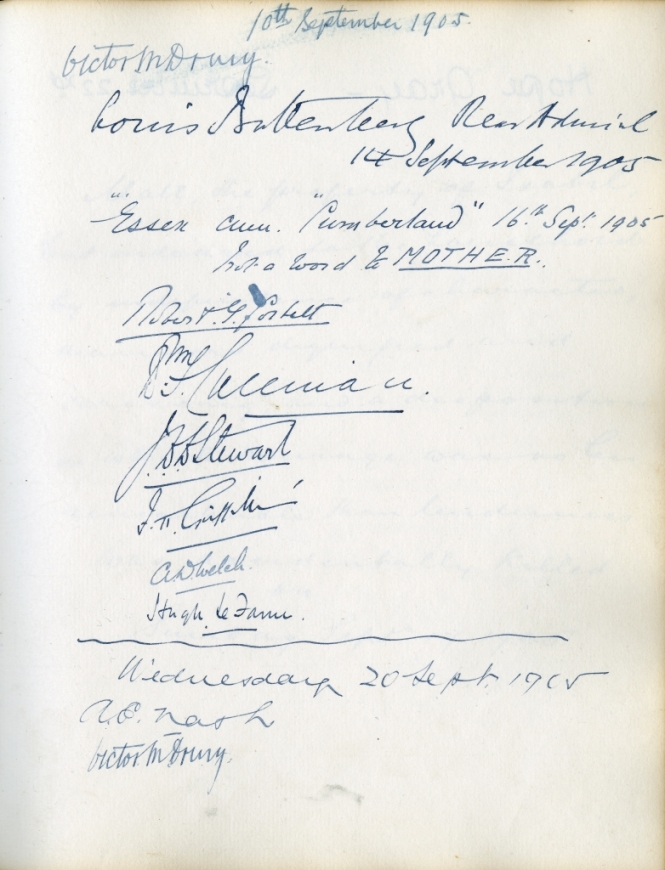 10th September 1905.
Victor M Drury.
Louis Battenberg Rear Admiral
14 September 1905
"Essex cum. "Cumberland" 16th Sept. 1905
Not a word to MOTHER.
Robert G.
J.D.D Stewart
J. H.
A.D. Welch.
Hugh Le Fanu.
Wednesday 20 Sept. 1905
A.E. Nash
Victor M Drury.